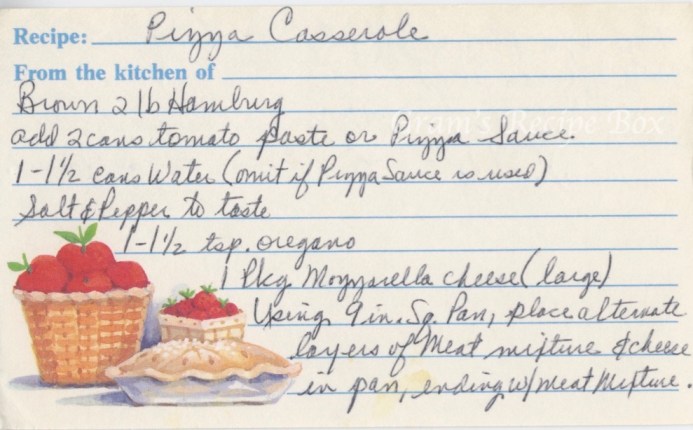 Recipe: Pizza Casserole
From the kitchen of
Brown 2 lb Hamburg
Gram's Recipe Box
add 2 cans tomato paste or Pizza Sauce.
1-1½ cans Water (omit if Pizza Sauce is used)
Salt & Pepper to taste
1-1½ tsp. oregano
1 Pkg Mozzarella cheese (large)
Using 9 in. Sq Pan, place alternate
layers of Meat mixture & cheese
in pan, ending w/ Meat Mixture.